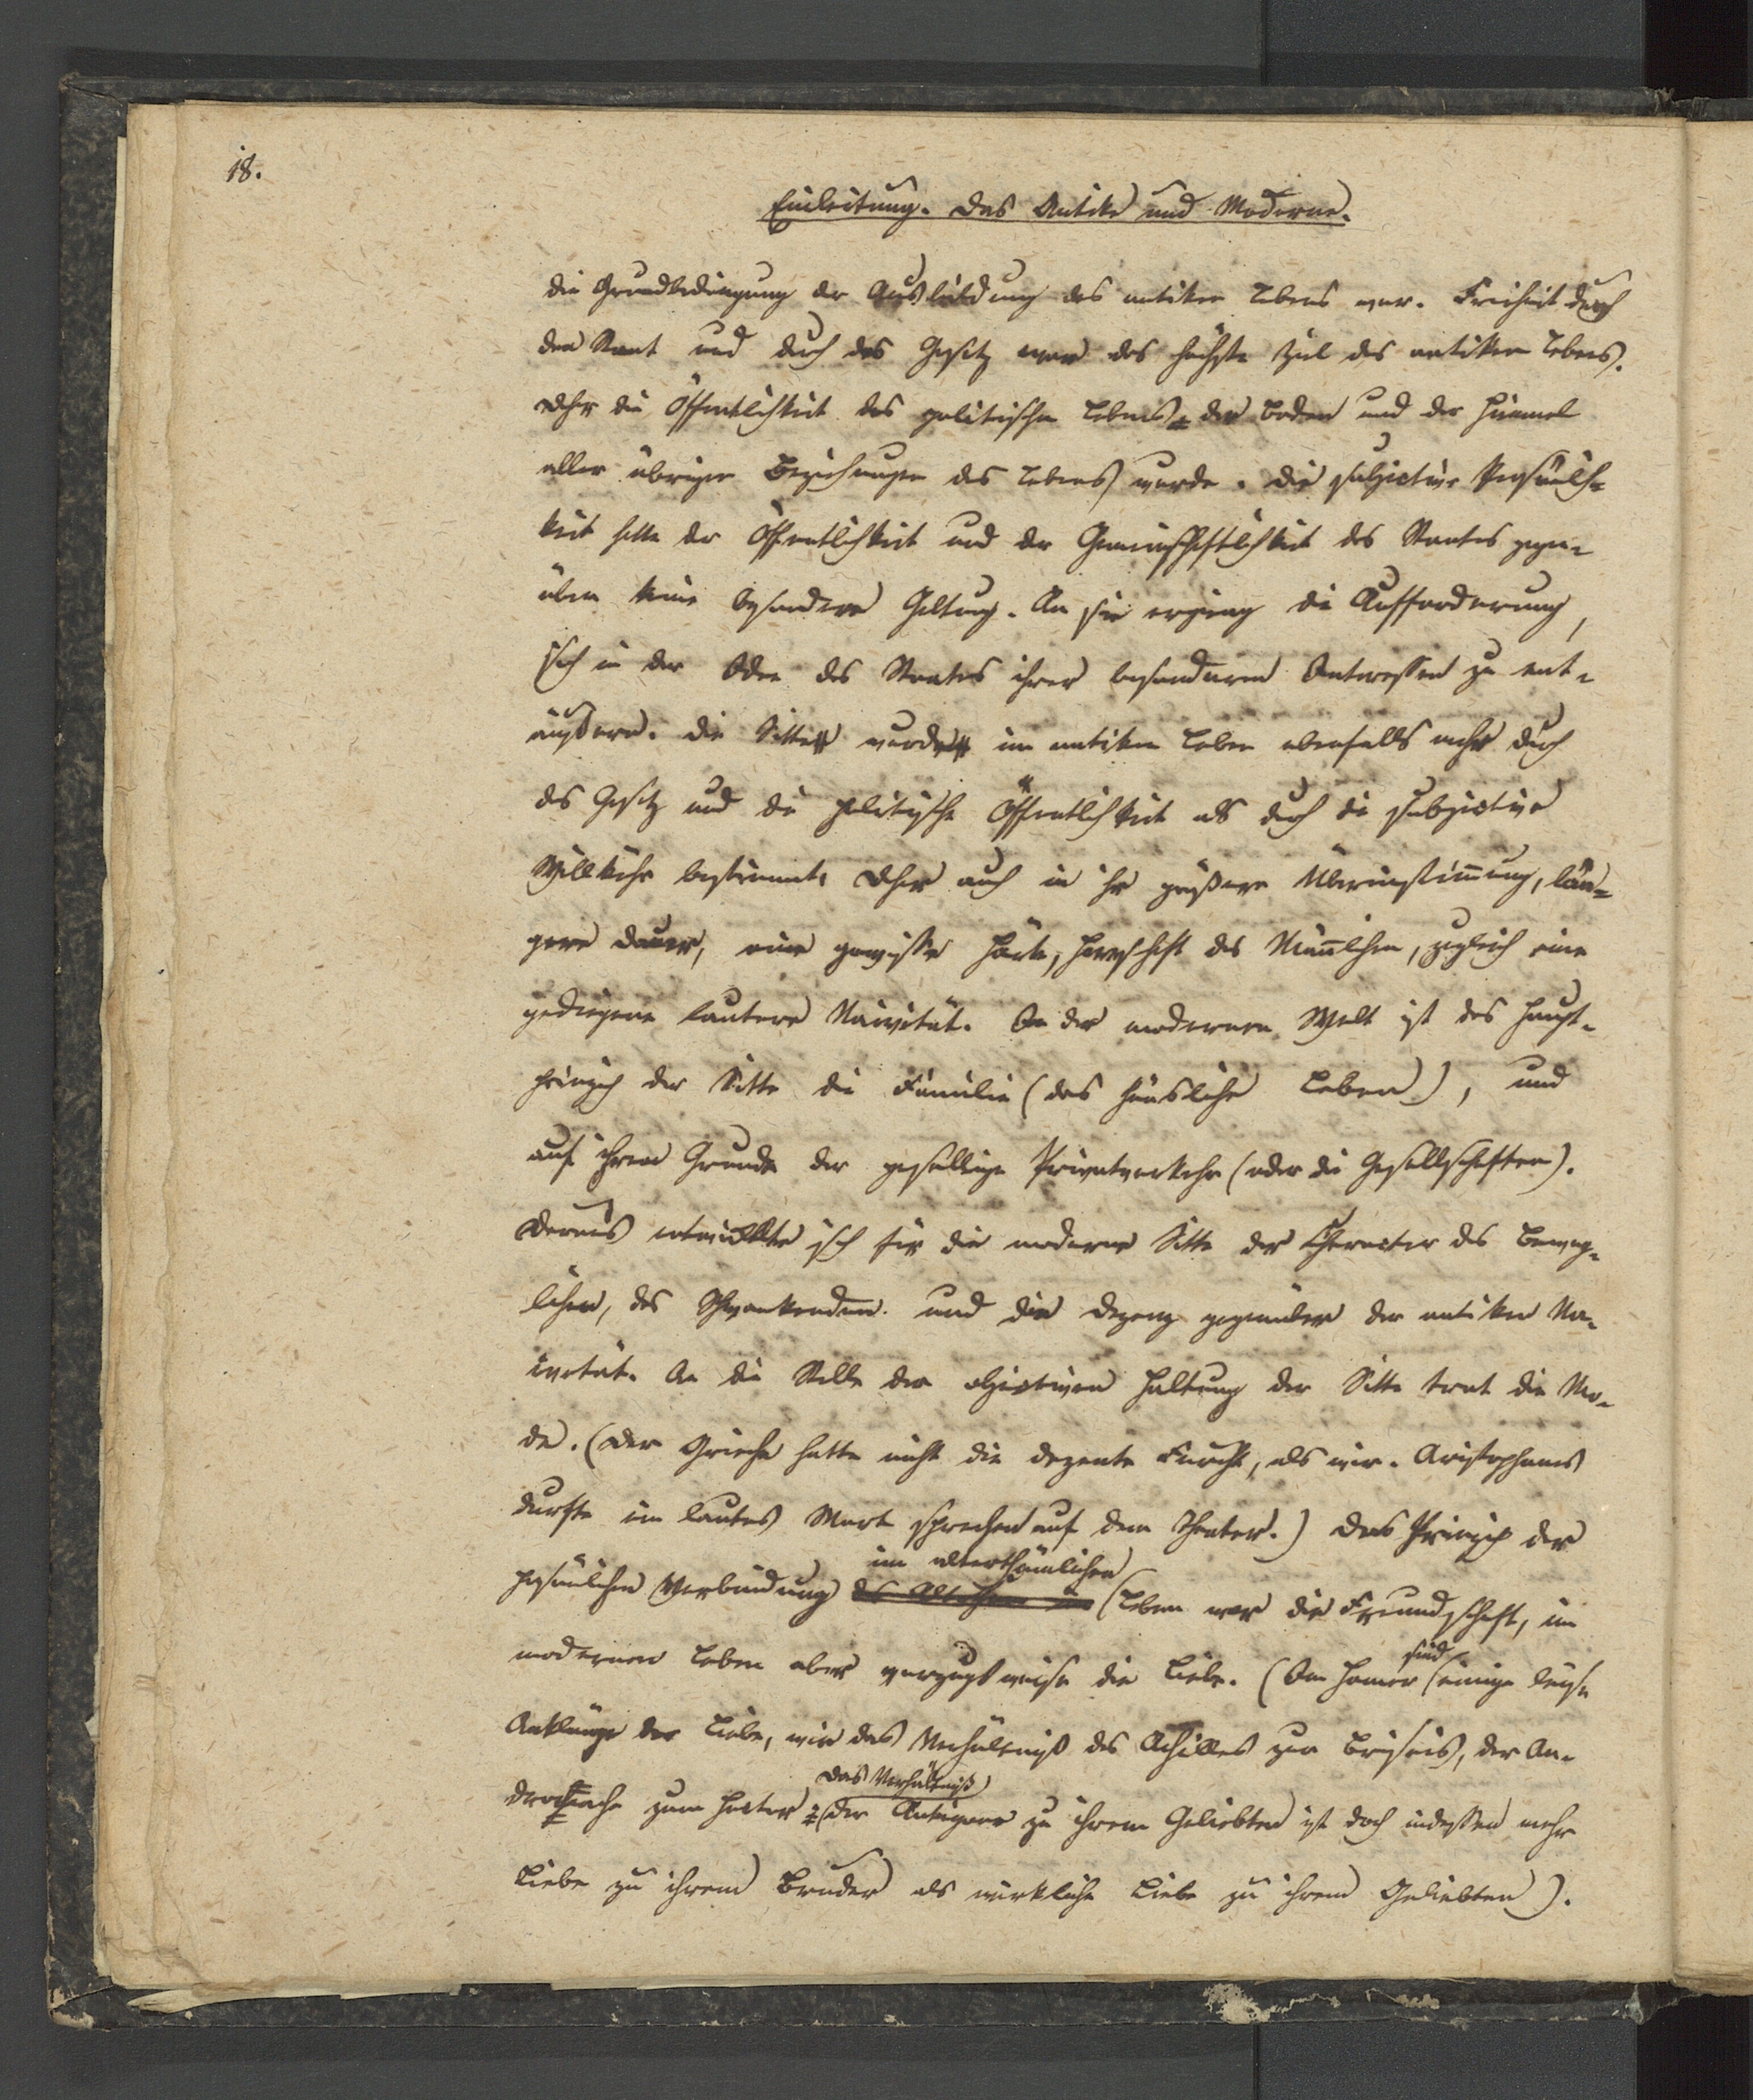 18.
Einleitung. Das Antike und Moderne.
die Grundbedingung der Ausbildung des antiken Lebens war. Freiheit durch
den Staat und durch das Gesetz war das höchste Ziel des antiken Lebens.
Daher die Öffentlichkeit des politischen Lebens der Boden und der Himmel
aller übrigen Beziehungen des Lebens wurde. Die subjective Persönlich-
keit hatte der Öffentlichkeit und der Gemeinschaftlichkeit des Staates gegen-
über keine besondere Geltung. An sie erging die Aufforderung,
sich in der Idee des Staates ihrer besonderen Interessen zu ent-
äußern. Die Sitte wurde im antiken Leben ebenfalls mehr durch
das Gesetz und die politische Öffentlichkeit als durch die subjective
Willkühr bestimmt. Daher auch in ihr größere Übereinstimmung, län-
gere Dauer, eine gewisse Härte, Herrschaft des Männlichen, zugleich eine
gediegene lautere Naivität. In der modernen Welt ist das Haupt-
prinzip der Sitte die Familie (das häusliche Leben), und
auf ihrem Grunde der gesellige Privatverkehr (oder die Gesellschaften).
Daraus entwickelte sich für die moderne Sitte der Character des Beweg-
lichen, des Schwankenden und die Dezenz gegenüber der antiken Na-
ivetät. An die Stelle der objectiven Haltung der Sitte trat die Mo-
de. (Der Grieche hatte nicht die dezente Furcht, als wir. Aristophanes
durfte ein lautes Wort sprechen auf dem Theater.) Das Prinzip der
im alterthümlichen
persönlichen Verbindung Leben war die Freundschaft, im
modernen Leben aber vorzugsweise die Liebe. (Im Homer sind einige leise
Anklänge der Liebe, wie das Verhältniß des Achilles zur Briseis, der An-
dromache zum Hector; das Verhältniß der Antigone zu ihrem Geliebten ist doch indessen mehr
Liebe zu ihrem Bruder als wirkliche Liebe zu ihrem Geliebten).